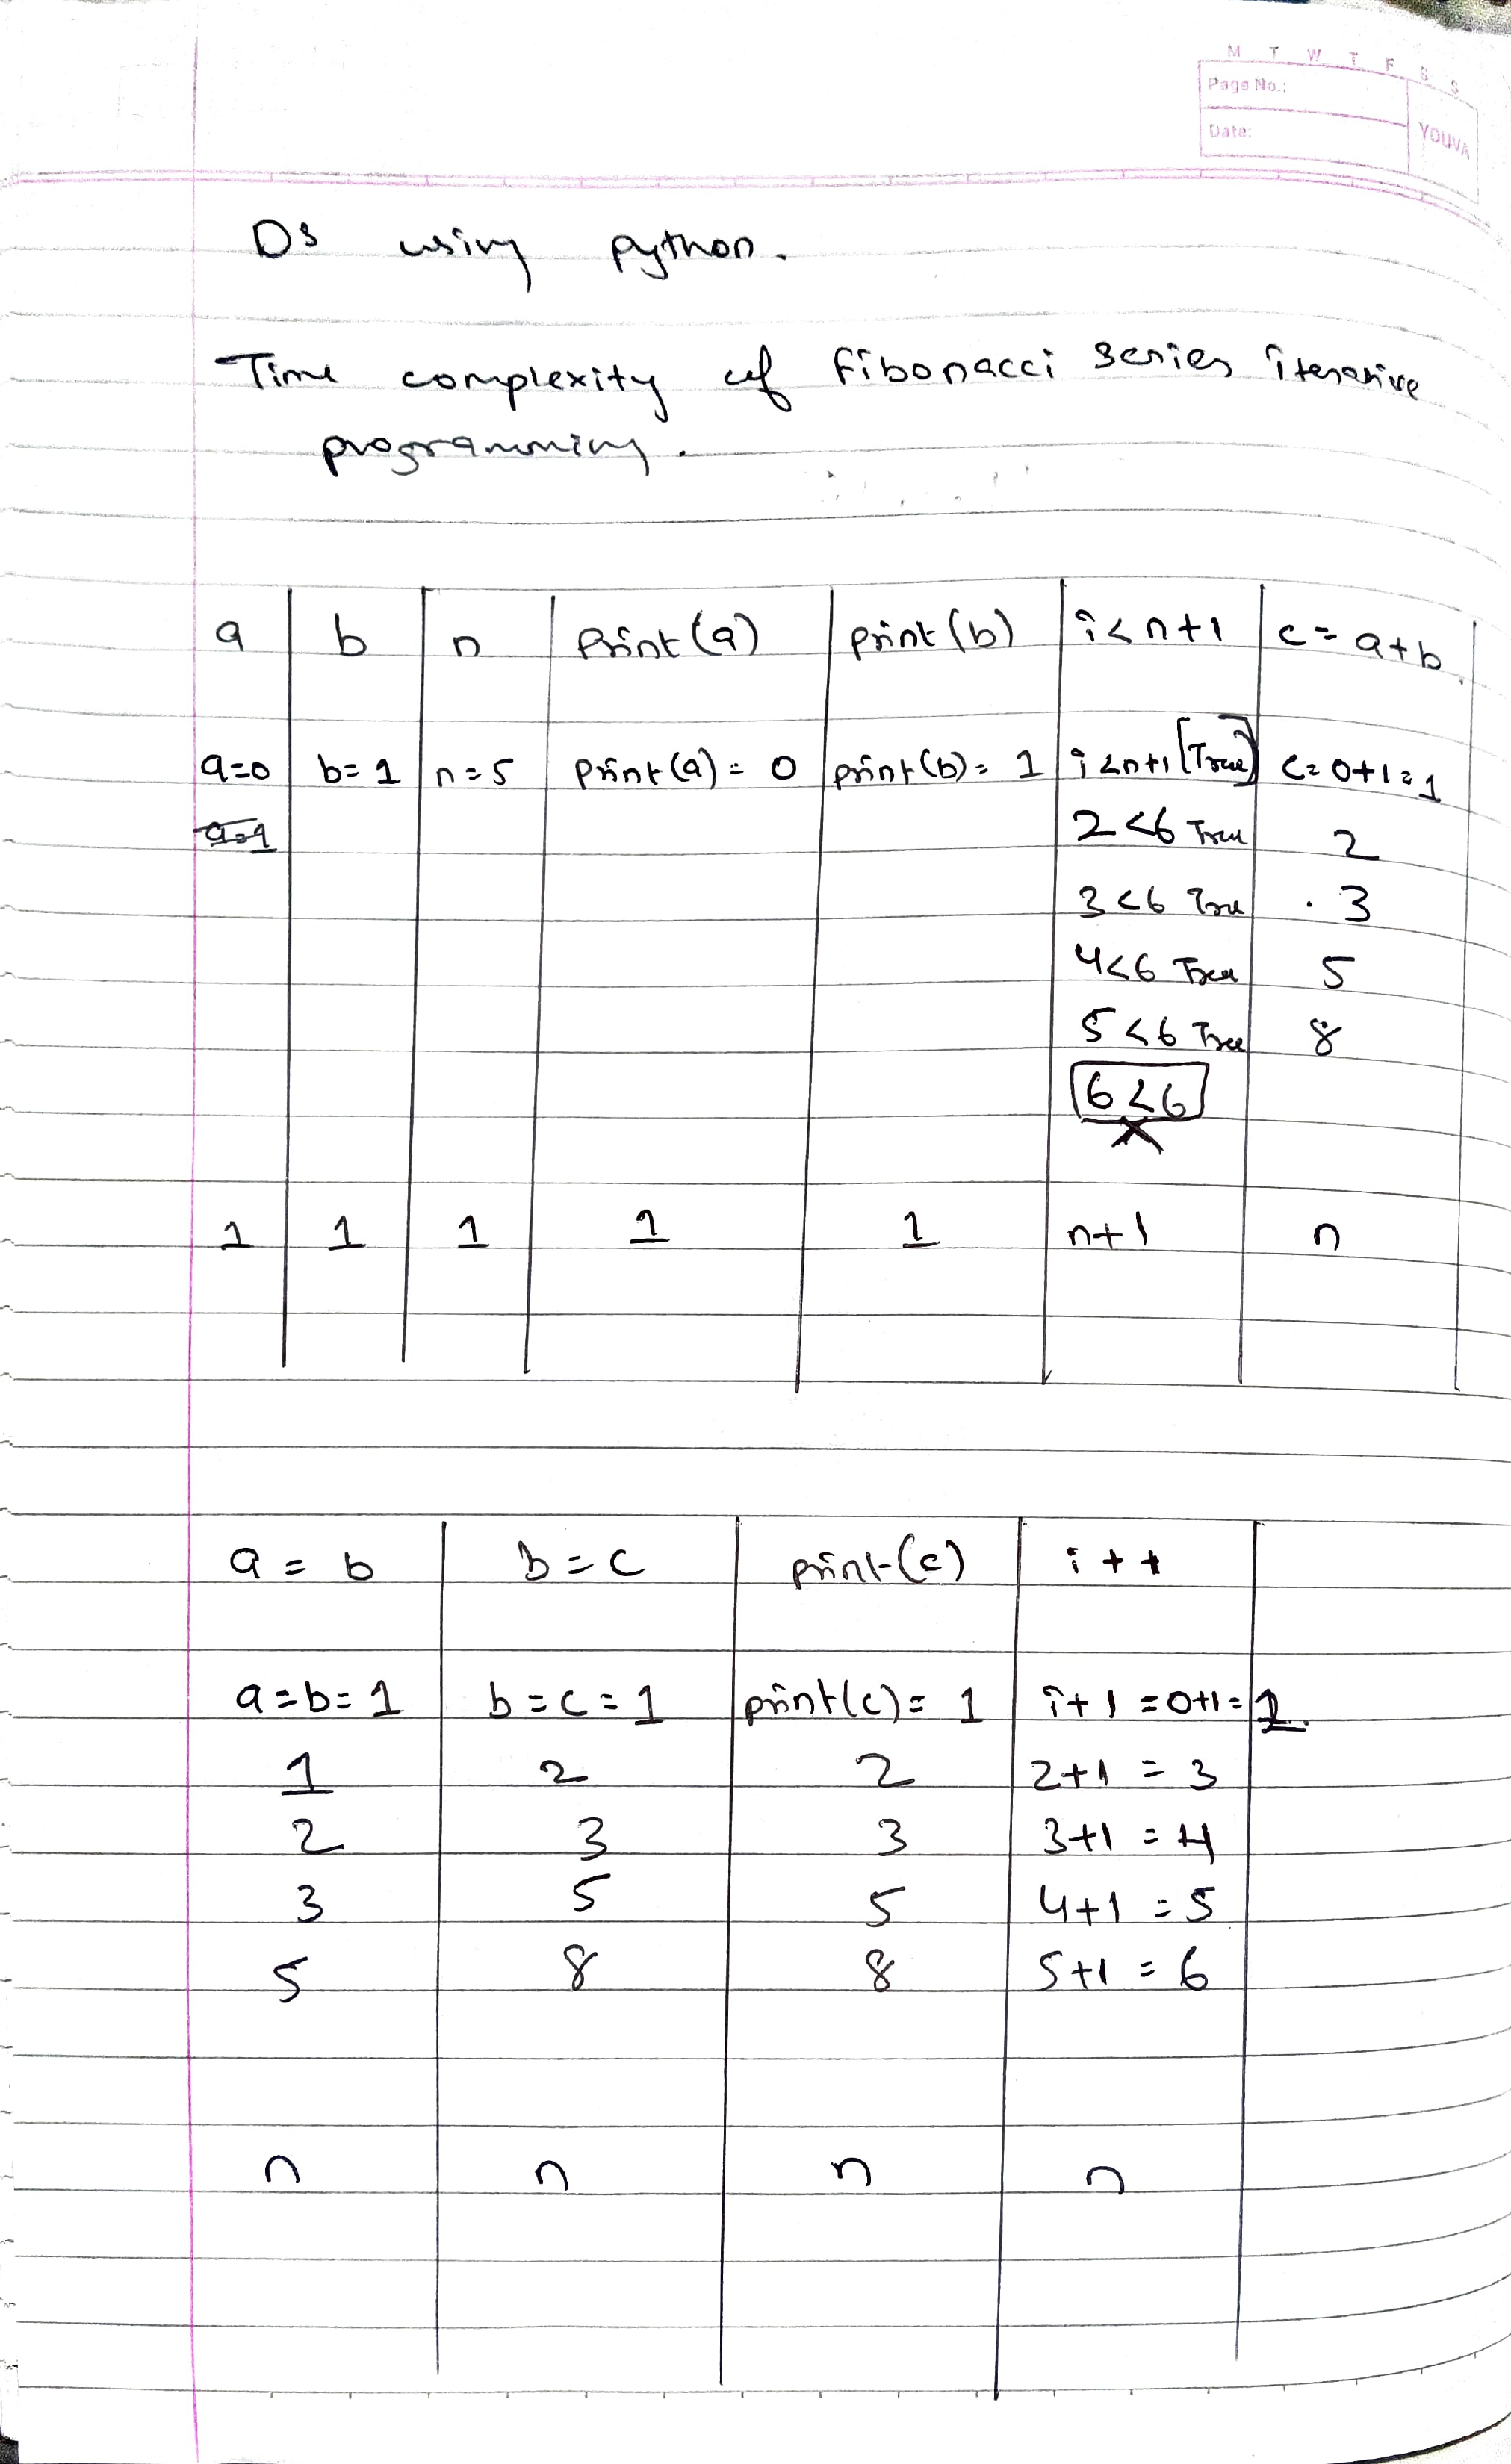 M T W T F S S
Page No.:
Date:
YOUVA
DS using python.
Time complexity of fibonacci series iterative
programming.
a b n Print(a) print(b) i<n+1 c=a+b
a=0 b=1 n=5 print(a)=0 print(b)=1 i<n+1 [True] c=0+1=1
a=1 2<6 True 2
3<6 True 3
4<6 True 5
5<6 True 8
6<6
1 1 1 1 1 n+1 n
a=b b=c print(c) i++
a=b=1 b=c=1 print(c)=1 i+1=0+1=1
1 2 2 2+1=3
2 3 3 3+1=4
3 5 5 4+1=5
5 8 8 5+1=6
n n n n